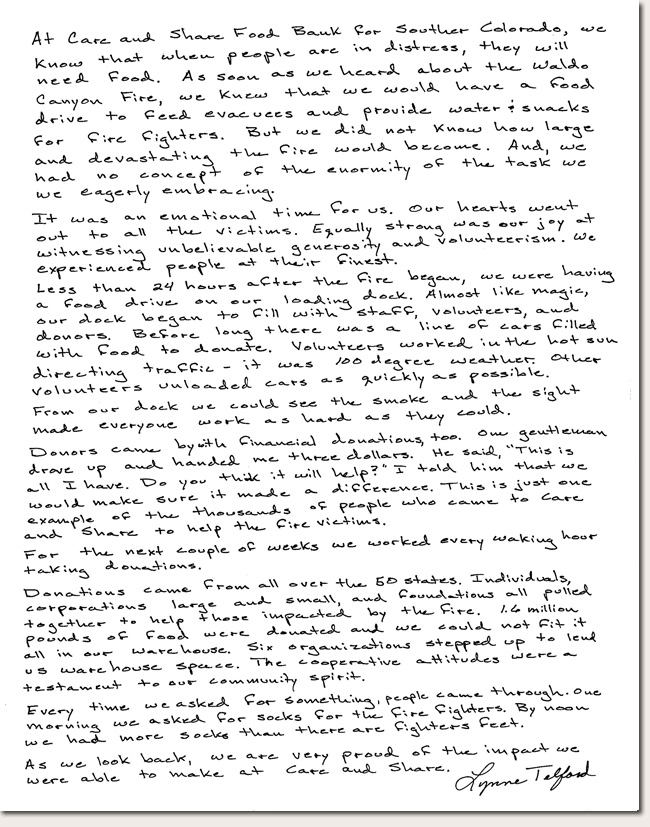 At Care and Share Food Bank for Souther Colorado, we
know that when people are in distress, they will
need food. As soon as we heard about the Waldo
Canyon Fire, we knew that we would have a food
drive to feed evacuees and provide water & snacks
for fire fighters. But we did not know how large
and devastating the fire would become. And, we
had no concept of the enormity of the task we
we eagerly embracing.
It was an emotional time for us. Our hearts went
out to all the victims. Equally strong was our joy at
witnessing unbelievable generosity and volunteerism. We
experienced people at their finest.
Less than 24 hours after the fire began, we were having
a food drive on our loading dock. Almost like magic,
our dock began to fill with staff, volunteers, and
donors. Before long there was a line of cars filled
with food to donate. Volunteers worked in the hot sun
directing traffic - it was 100 degree weather. Other
volunteers unloaded cars as quickly as possible.
From our dock we could see the smoke and the sight
made everyone work as hard as they could.
Donors came by with financial donations, too. One gentleman
drove up and handed me three dollars. He said, "This is
all I have. Do you think it will help?" I told him that we
would make sure it made a difference. This is just one
example of the thousands of people who came to Care
and Share to help the fire victims.
For the next couple of weeks we worked every waking hour
taking donations.
Donations came from all over the 50 states. Individuals,
corporations large and small, and foundations all pulled
together to help those impacted by the fire. 1.6 million
pounds of food were donated and we could not fit it
all in our warehouse. Six organizations stepped up to lend
us warehouse space. The cooperative attitudes were a
testament to our community spirit.
Every time we asked for something, people came through. One
morning we asked for socks for the fire fighters. By noon
we had more socks than there are fighters feet.
As we look back, we are very proud of the impact we
were able to make at Care and Share.
Lynne Telford